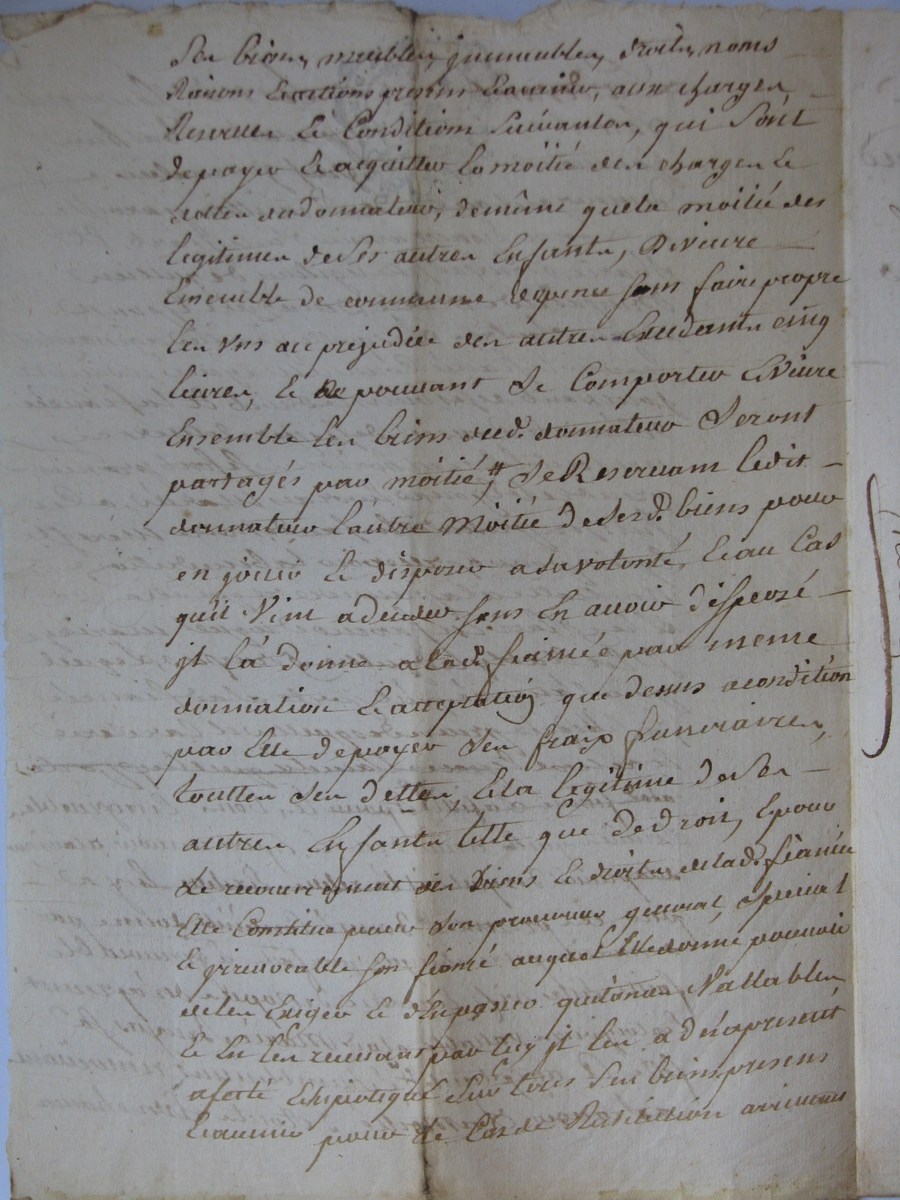 Ses biens, meubles, jmmeubles, droits, noms
Raisons & actions presens & avenir, aux charges
Reserves & Conditions suivantes, qui sont
de payer & acquitter la moitié des charges &
dettes du donnateur, de même que la moitié des
legitimes de ses autres Enfants, de vivre
Ensemble de commune depense sans faire propre
les uns au prejudice des autres Excedants cinq
livres, & ne pouvant se Comporter & vivre
Ensemble les biens dud. donnateur seront
partagés par moitié, # se Reservant ledit
donnateur l'autre moitié de sesd. biens pour
en jouir & disposer a sa volonté, & au Cas
qu'il vint a deceder sans En avoir disposé
jl la donne a lad. fiancée par meme
donnation & acceptation que dessus a condition
par Elle de payer ses fraix funeraires,
touttes ses dettes, & la legitime de ses
autres Enfants telle que de droit, & pour
le recouvrement des Biens & droits de lad. fiancée
Elle Constitue pour son procureur general, special
& jrrevocable son fiancé auquel Elle donne pouvoir
de les Exiger & d'En passer quitances Vallables
& En les recevant par luy jl les a dès a present
afecté & hipotequé sur tous ses biens presens
& avenir pour le Cas de Restitution arrivant